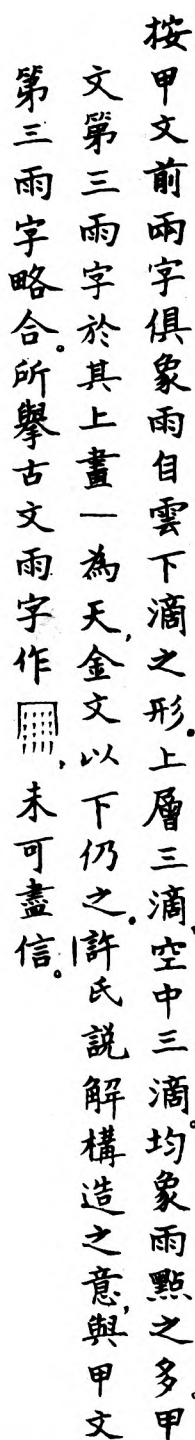 按甲文前兩字俱象雨自雲下滴之形。上層三滴，空中三滴。均象雨點之多。甲
文第三雨字於其上畫一為天，金文以下仍之。許氏說解構造之意，與甲文
第三雨字略合。所舉古文雨字作𠕲，未可盡信。